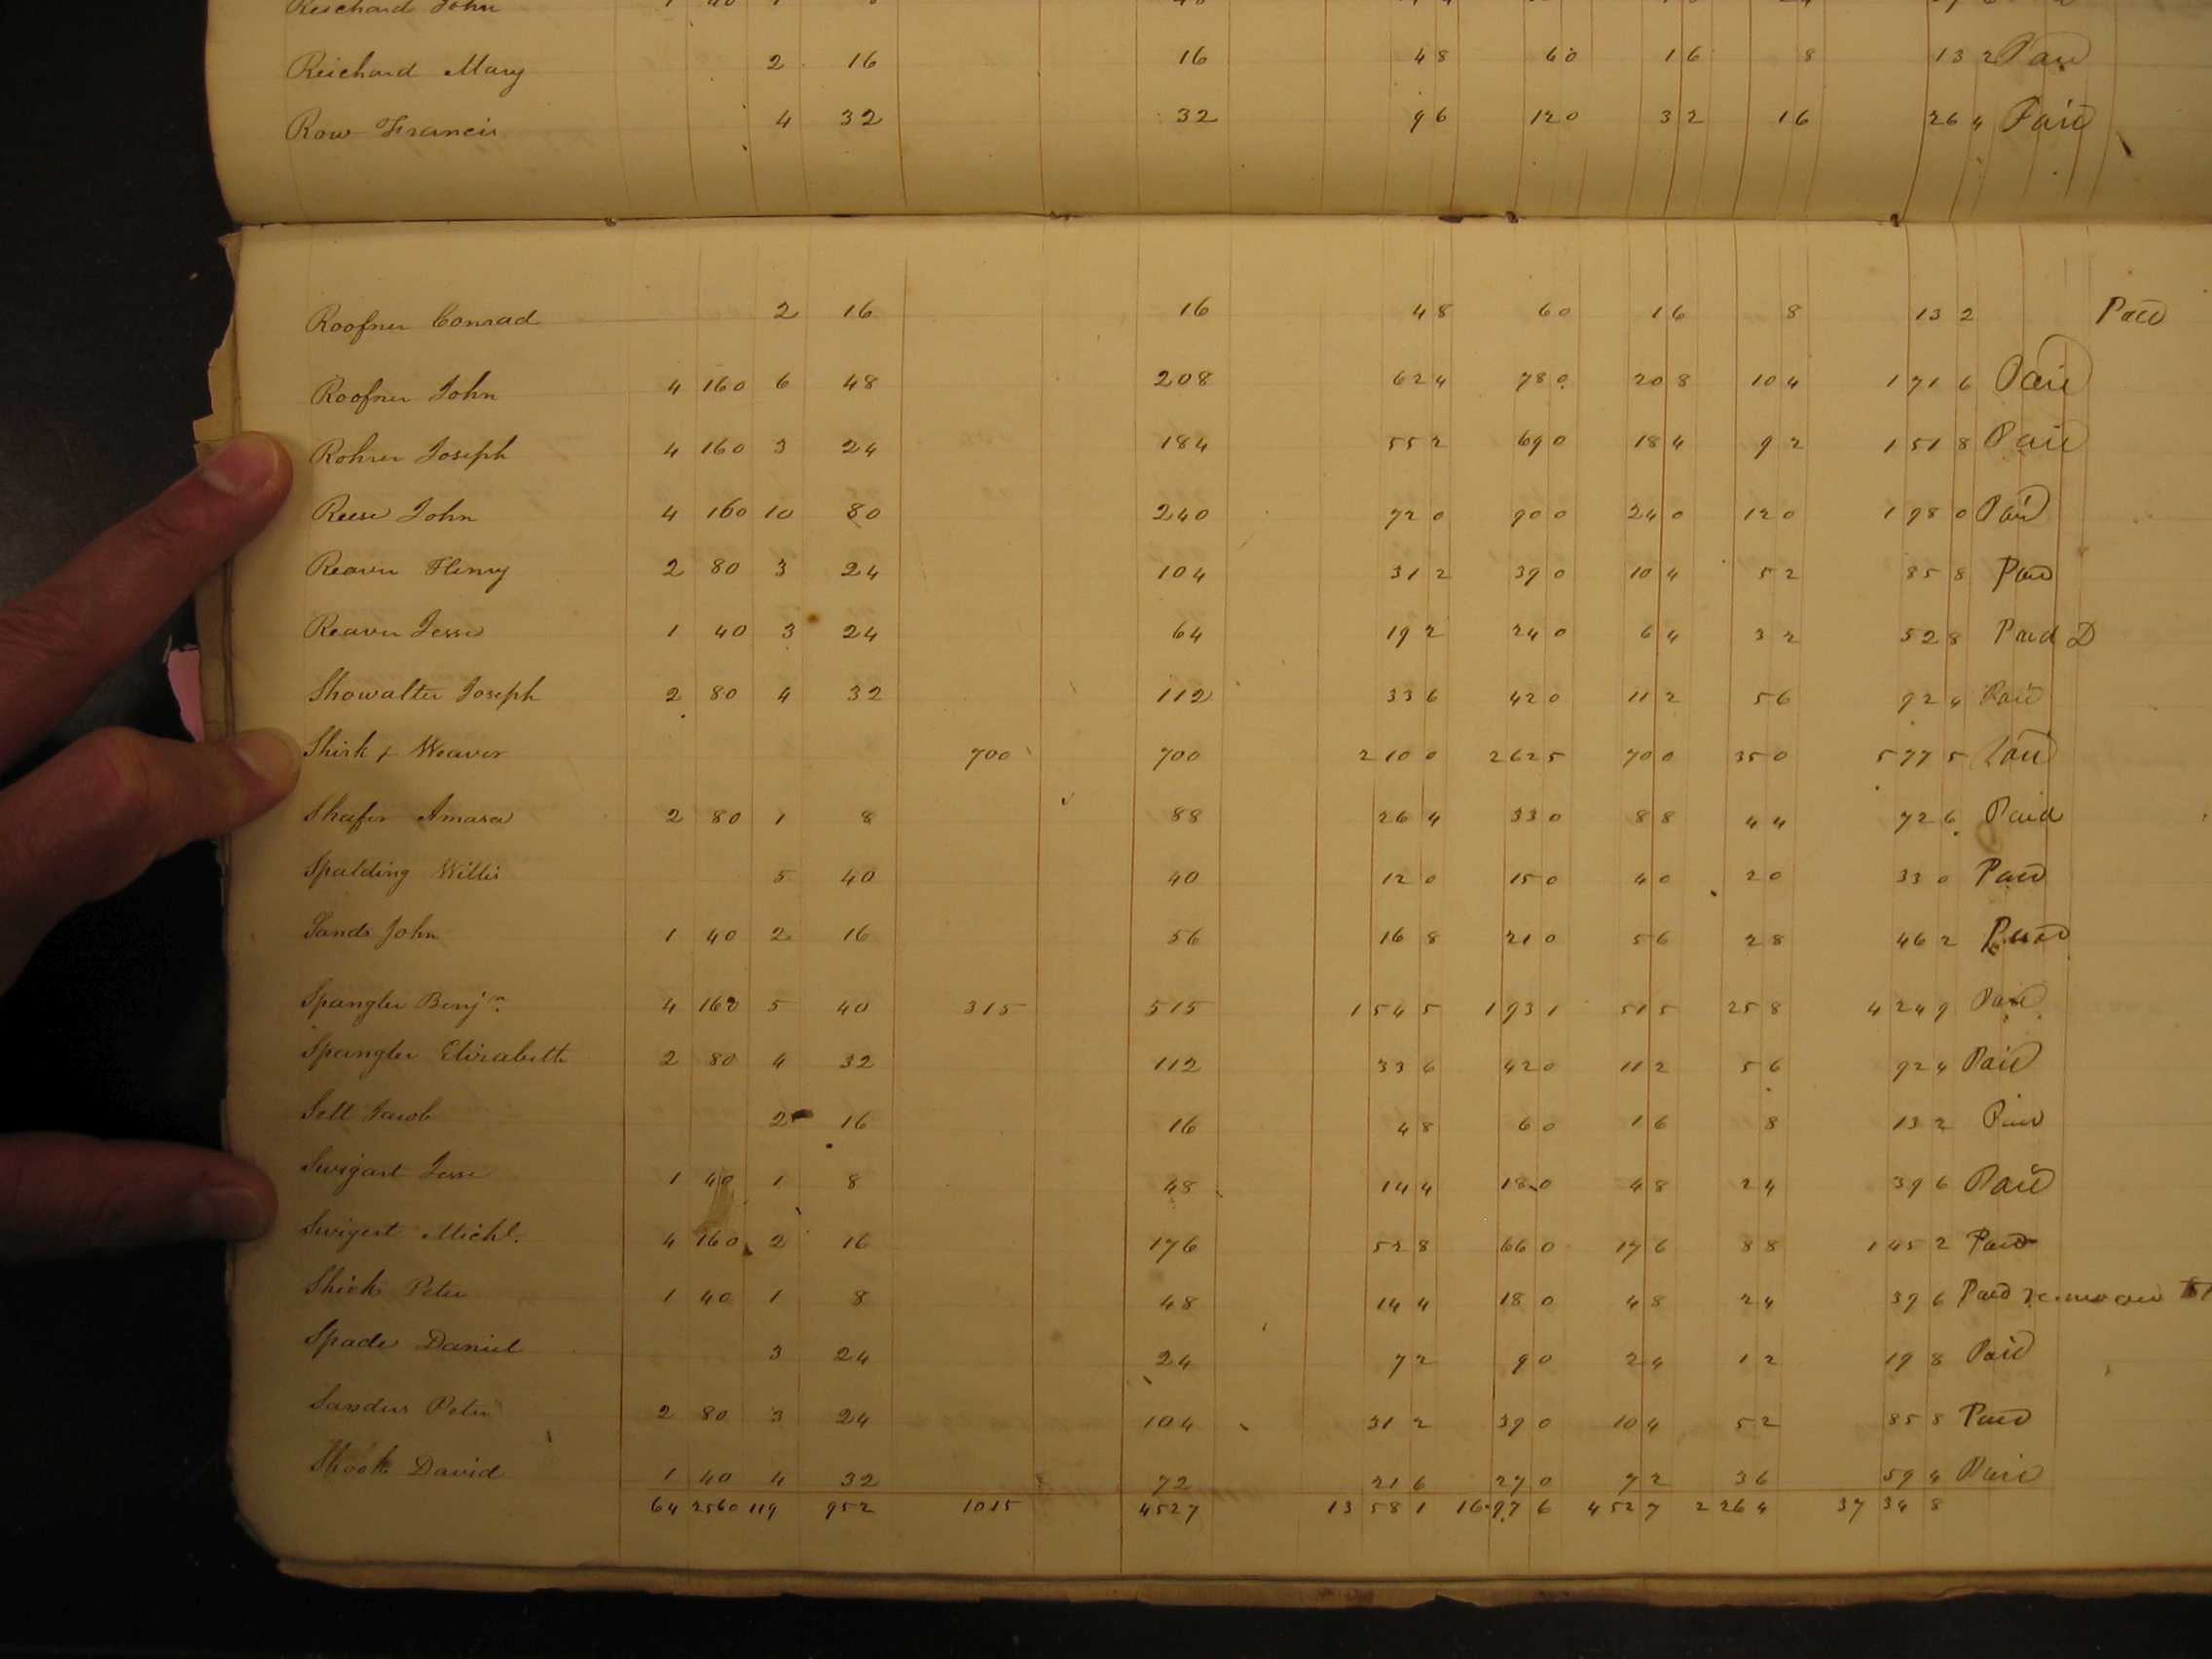 Reichard John 1 40 1 8 48
Reichard Mary 2 16 16 48 60 16 8 132 Paid
Row Francis 4 32 32 96 120 32 16 264 Paid
Roofner Conrad 2 16 16 48 60 16 8 132 Paid
Roofner John 4 160 6 48 208 624 780 208 104 1716 Paid
Rohrer Joseph 4 160 3 24 184 552 690 184 92 1518 Paid
Reese John 4 160 10 80 240 720 900 240 120 1980 Paid
Reaver Henry 2 80 3 24 104 312 390 104 52 858 Paid
Reaver Jesse 1 40 3 24 64 192 240 64 32 528 Paid D
Showalter Joseph 2 80 4 32 112 336 420 112 56 924 Paid
Shirk & Weaver 700 700 2100 2625 700 350 5775 Paid
Shafer Amasa 2 80 1 8 88 264 330 88 44 726 Paid
Spalding Willis 5 40 40 120 150 40 20 330 Paid
Sands John 1 40 2 16 56 168 210 56 28 462 Paid
Spangler Benjn. 4 160 5 40 315 515 1545 1931 515 258 4249 Paid
Spangler Elizabeth 2 80 4 32 112 336 420 112 56 924 Paid
Sell Jacob 2 16 16 48 60 16 8 132 Paid
Swigart Jesse 1 40 1 8 48 144 180 48 24 396 Paid
Swigert Michl. 4 160 2 16 176 528 660 176 88 1452 Paid
Shick Peter 1 40 1 8 48 144 180 48 24 396 Paid
Spade Daniel 3 24 24 72 90 24 12 198 Paid
Sander Peter 2 80 3 24 104 312 390 104 52 858 Paid
Shook David 1 40 4 32 72 216 270 72 36 594 Paid
64 2560 119 952 1015 4527 13581 16976 4527 2264 37348